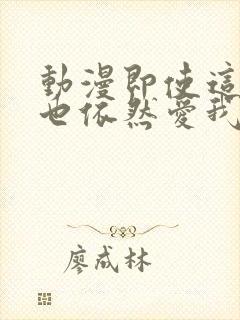 動漫即使這
也依然愛我
廖成林